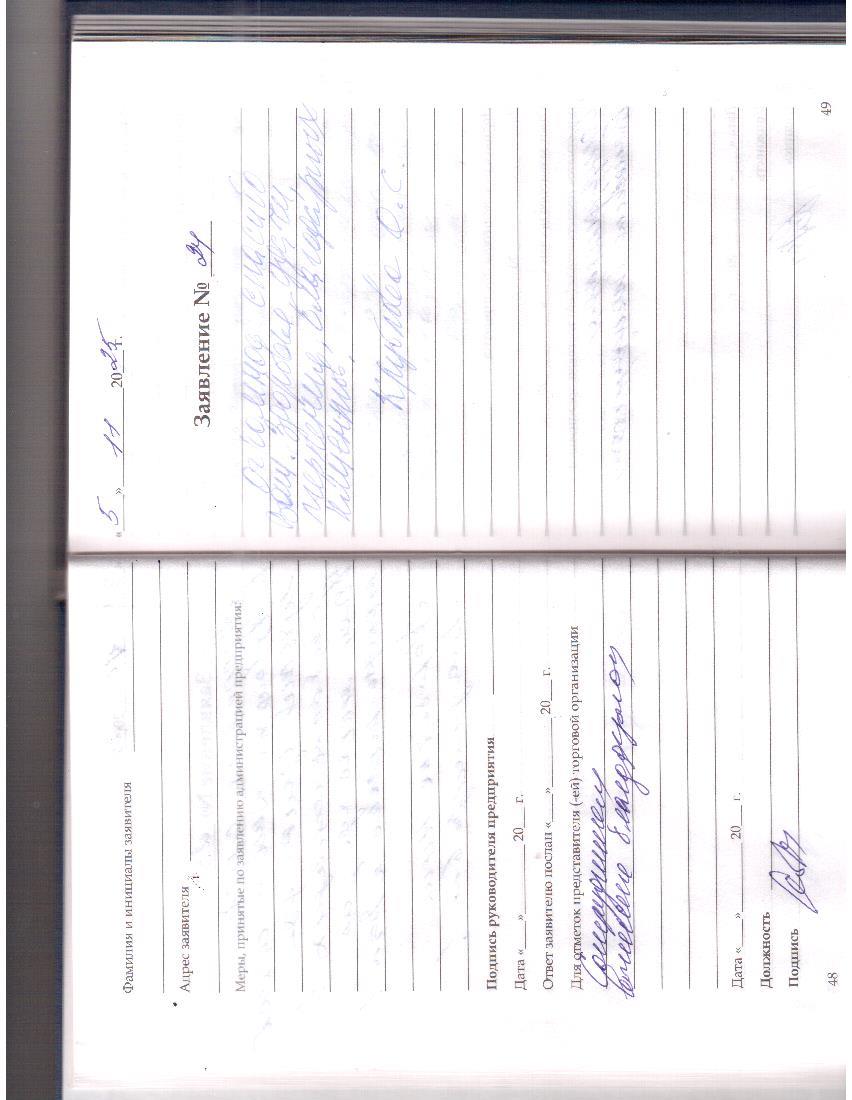 Фамилия и инициалы заявителя
Адрес заявителя
Меры, принятые по заявлению администрацией предприятия:
Подпись руководителя предприятия
Дата « » 20 г.
Ответ заявителю послан « » 20 г.
Для отметок представителя (-ей) торговой организации
Сотрудникам
вынесена благодарность
Дата « » 20 г.
Должность
Подпись
48
« 5 » 11 2025 г.
Заявление № 24
Огромное спасибо
вам. Здоровья, удачи,
терпения, благодарных
пациентов.
О.С.
49